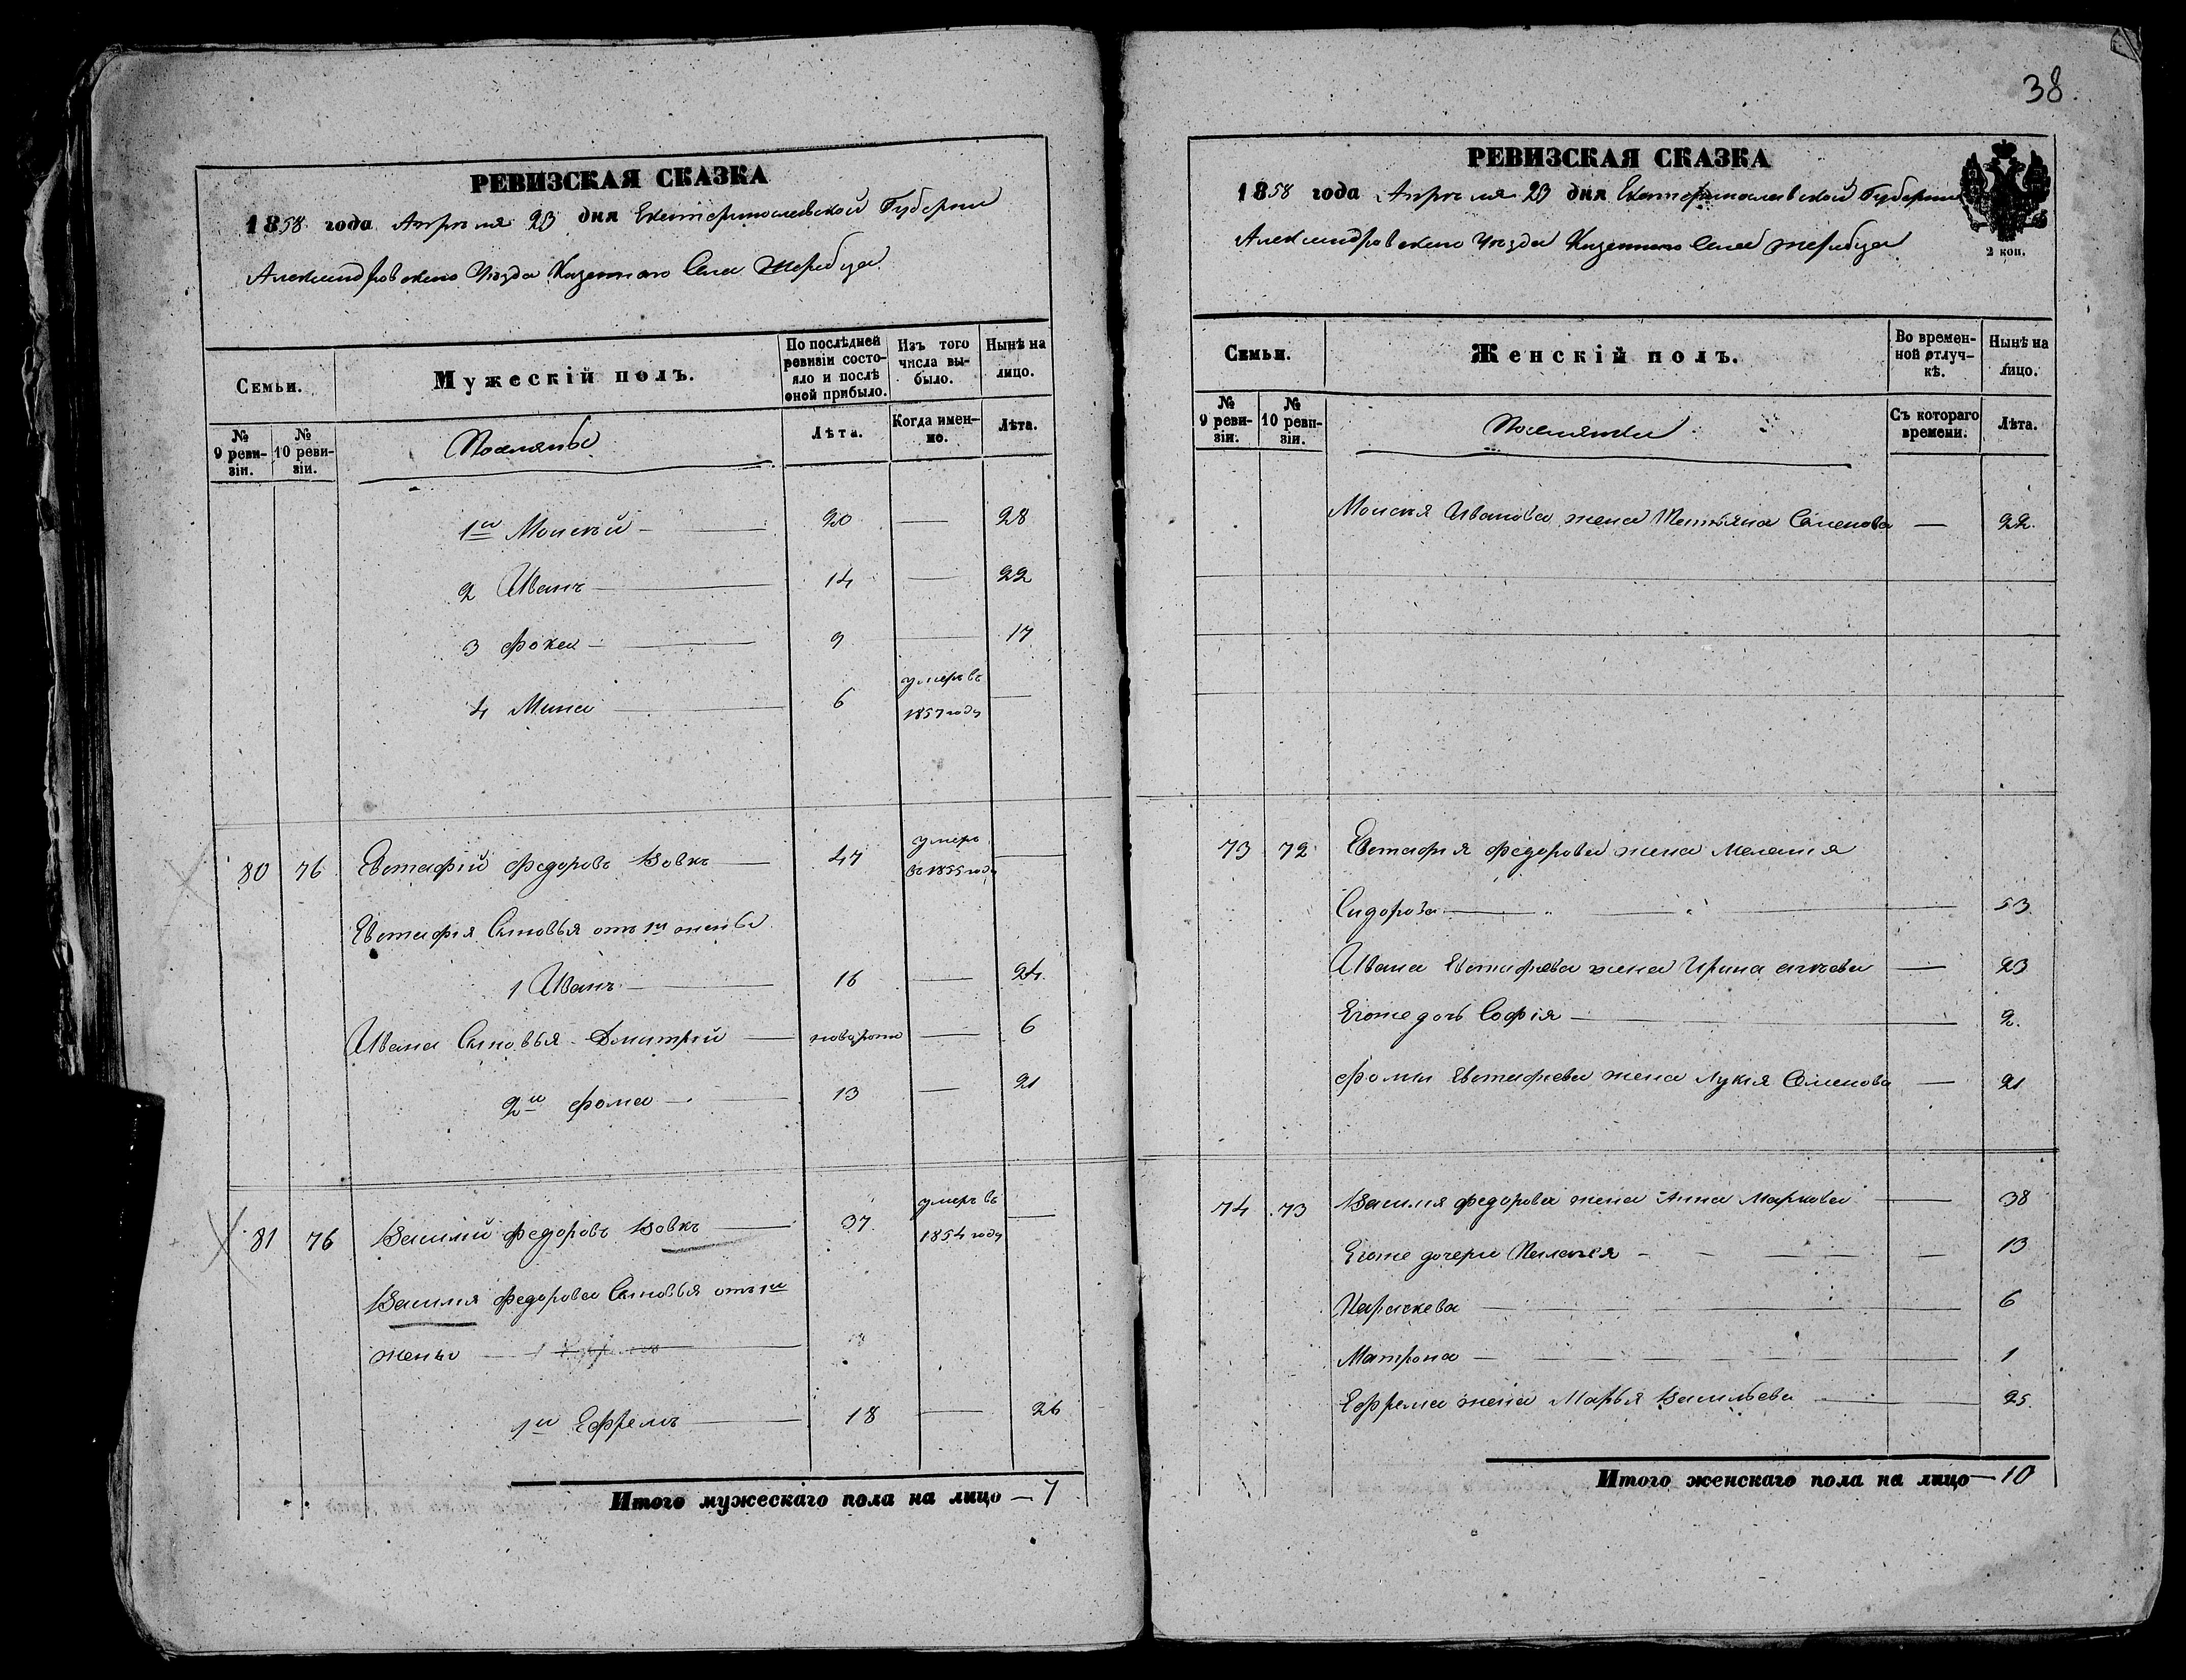 38
РЕВИЗСКАЯ СКАЗКА
1858 года Апрѣля 23 дня Екатеринославской Губерніи
Александровскаго Уѣзда Казеннаго Села Жеребца
Семьи.
Мужескій полъ.
По послѣдней ревизіи состояло и послѣ оной прибыло.
Изъ того числа выбыло.
Нынѣ на лицо.
№ 9 ревизіи.
№ 10 ревизіи.
Поселяне
Лѣта.
Когда именно.
Лѣта.
1й Моисѣй — 20 — 28
2 Иванъ — 14 — 22
3 Фока — 9 — 17
4 Мина — 6 умеръ въ 1857 году —
80 76 Евстафій Федоровъ Вовкъ — 47 умеръ въ 1855 году —
Евстафія Сыновья отъ 1й жены
1 Иванъ — 16 — 24
Ивана Сыновья Дмитрій — новорож — 6
2й Фома — 13 — 21
81 76 Василій Федоровъ Вовкъ — 37 умеръ въ 1854 году —
Василия Федорова Сыновья отъ 1й
жены — 1
1й Ефремъ — 18 — 26
Итого мужескаго пола на лицо — 7
РЕВИЗСКАЯ СКАЗКА
1858 года Апрѣля 23 дня Екатеринославской Губерніи
2 коп.
Александровскаго Уѣзда Казеннаго Села Жеребца
Семьи.
Женскій полъ.
Во временной отлучкѣ.
Нынѣ на лицо.
№ 9 ревизіи.
№ 10 ревизіи.
Поселянки
Съ котораго времени.
Лѣта.
Моисея Иванова жена Татьяна Семенова — 22
73 72 Евстафія Федорова жена Мелания
Сидорова — 53
Ивана Евстафьева жена Ирина — 23
Егоже дочь Софія — 2
Фомы Евстафьева жена Лукія Семенова — 21
74 73 Василія Федорова жена Анна Маркова — 38
Егоже дочери Пелагея — 13
Параскева — 6
Матрона — 1
Ефрема жена Марья Васильева — 25
Итого женскаго пола на лицо — 10